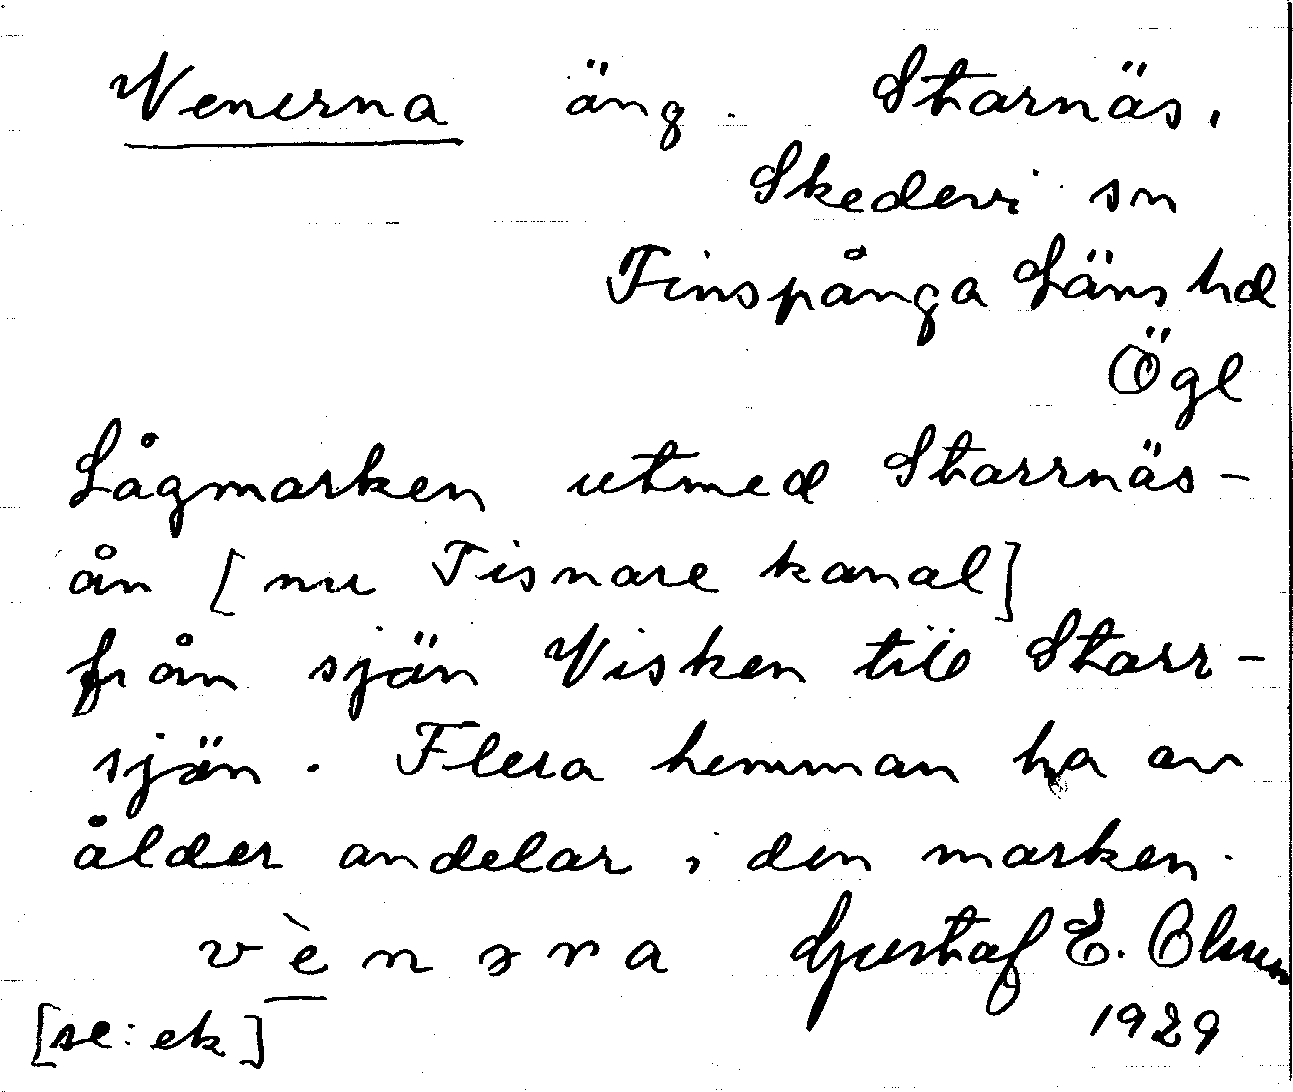 Wenerna äng. Starnäs,
Skedevi sn
Finspånga Läns hd
Ögl
Lågmarken utmed Starrnäs-
ån [nu Tisnare kanal]
från sjön Wisken till Starr-
sjön. Flera hemman ha av
ålder andelar i den marken.
vènəra Gustaf E. Olsson
[se: ek] 1929